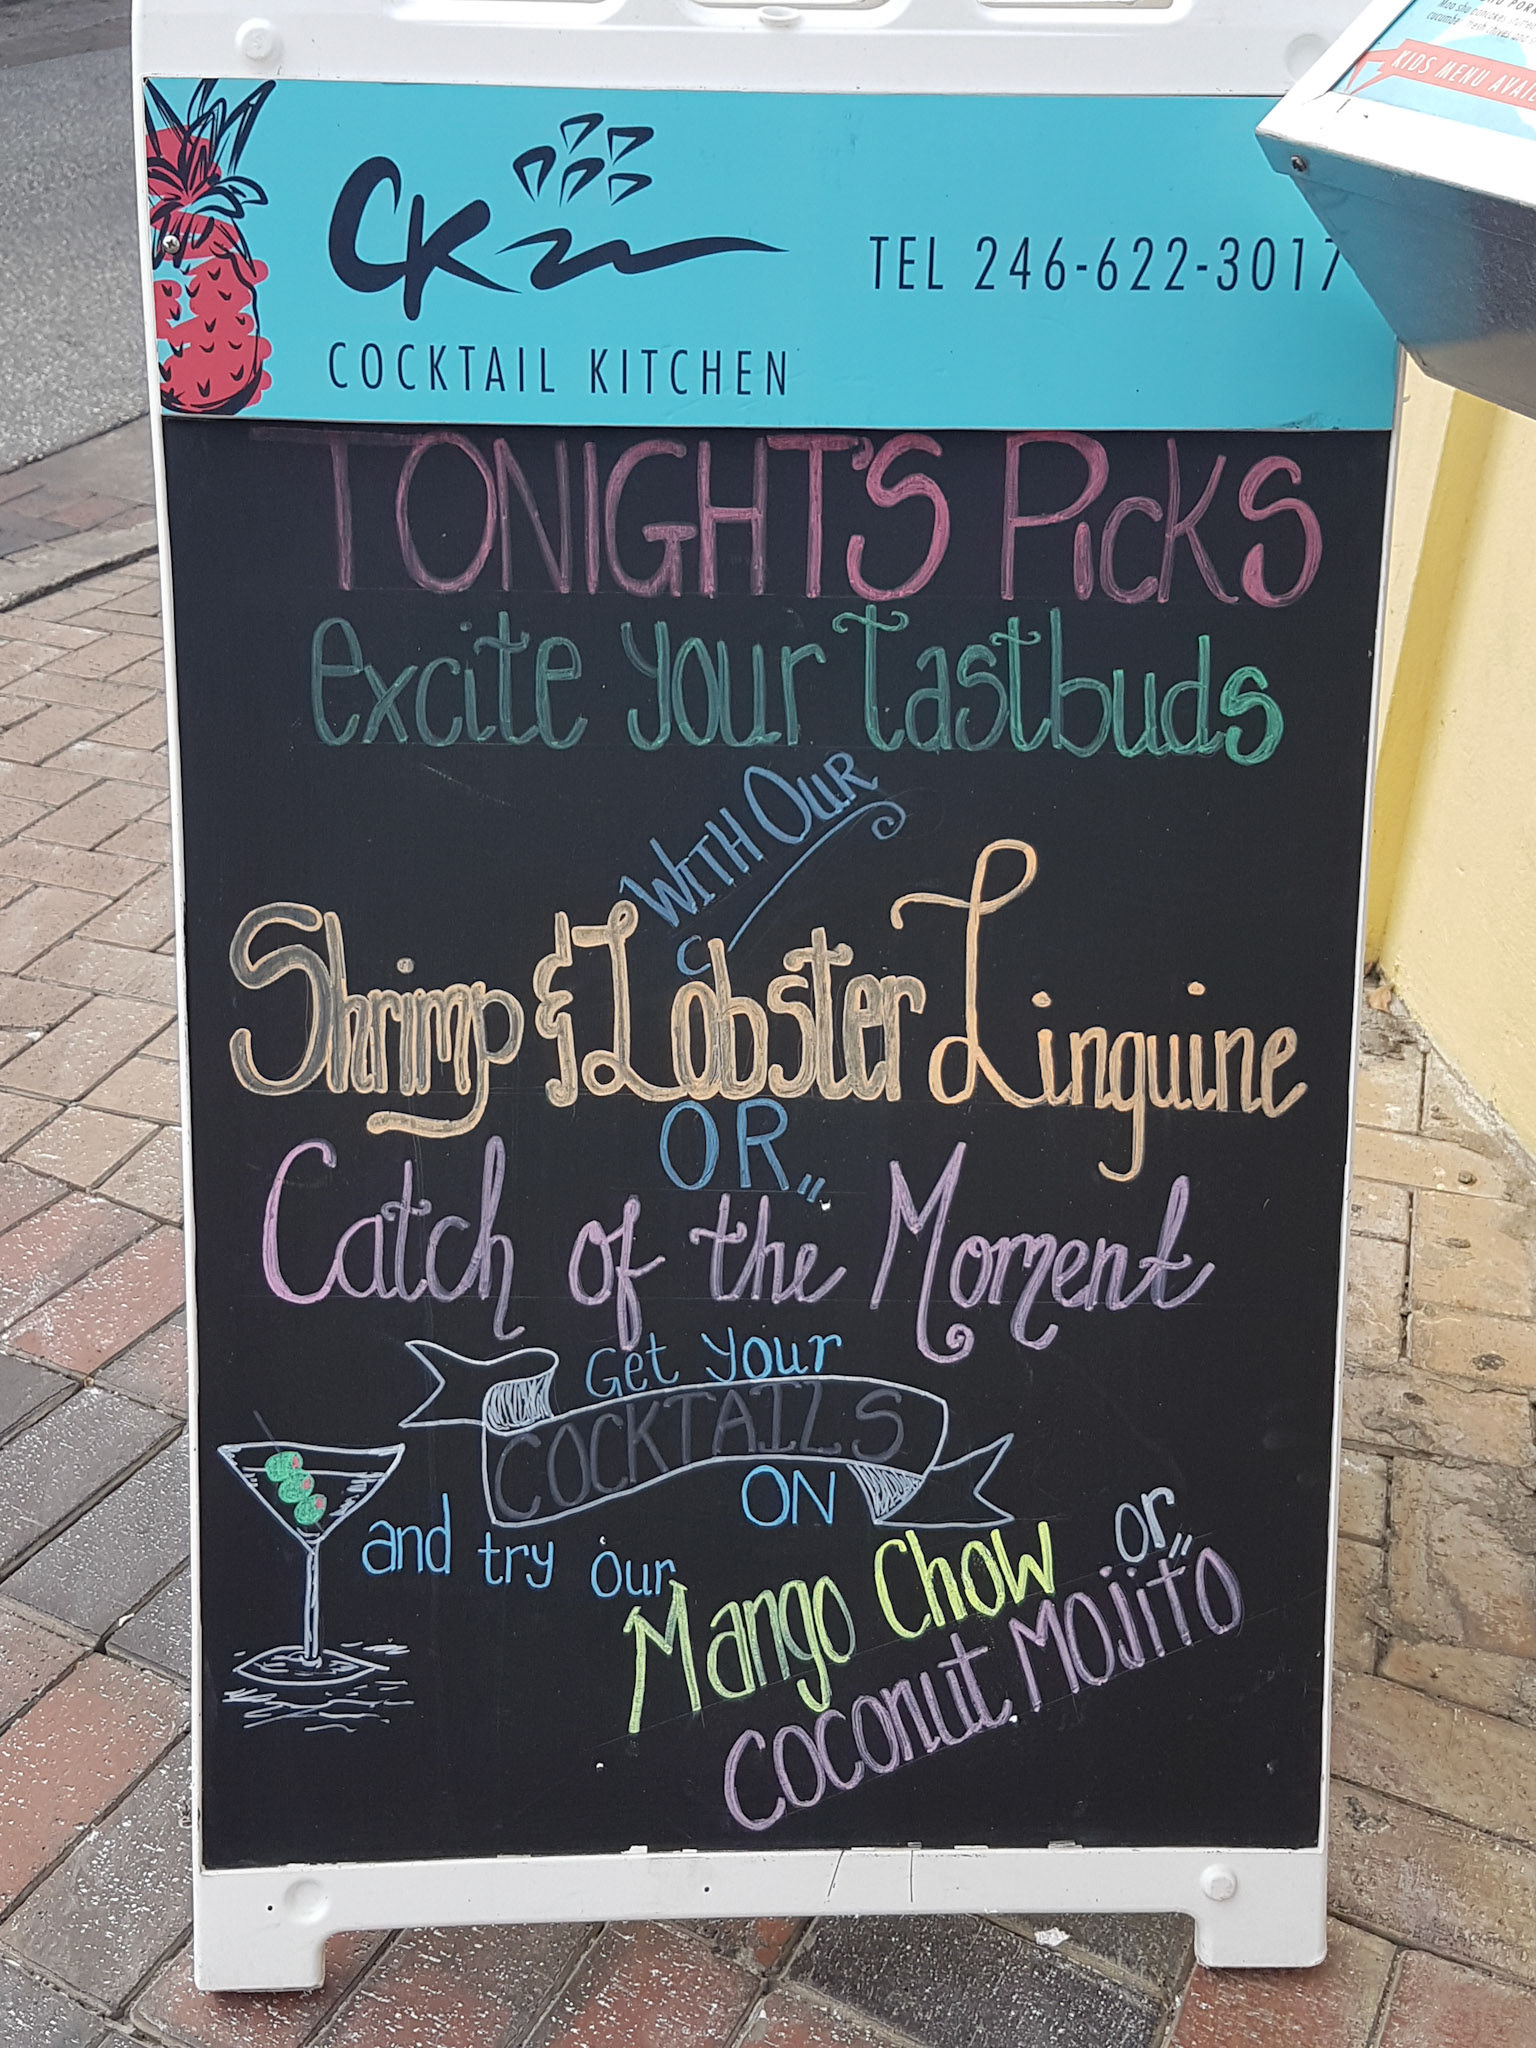 CK
TEL 246-622-3017
COCKTAIL KITCHEN
TONIGHT'S PicKS
Excite your tastbuds
WITH OUR
Shrimp & Lobster Linguine
OR,,
Catch of the Moment
Get your
COCKTAILS
ON
and try our
Mango Chow or,,
coconut MOjitO
KIDS MENU